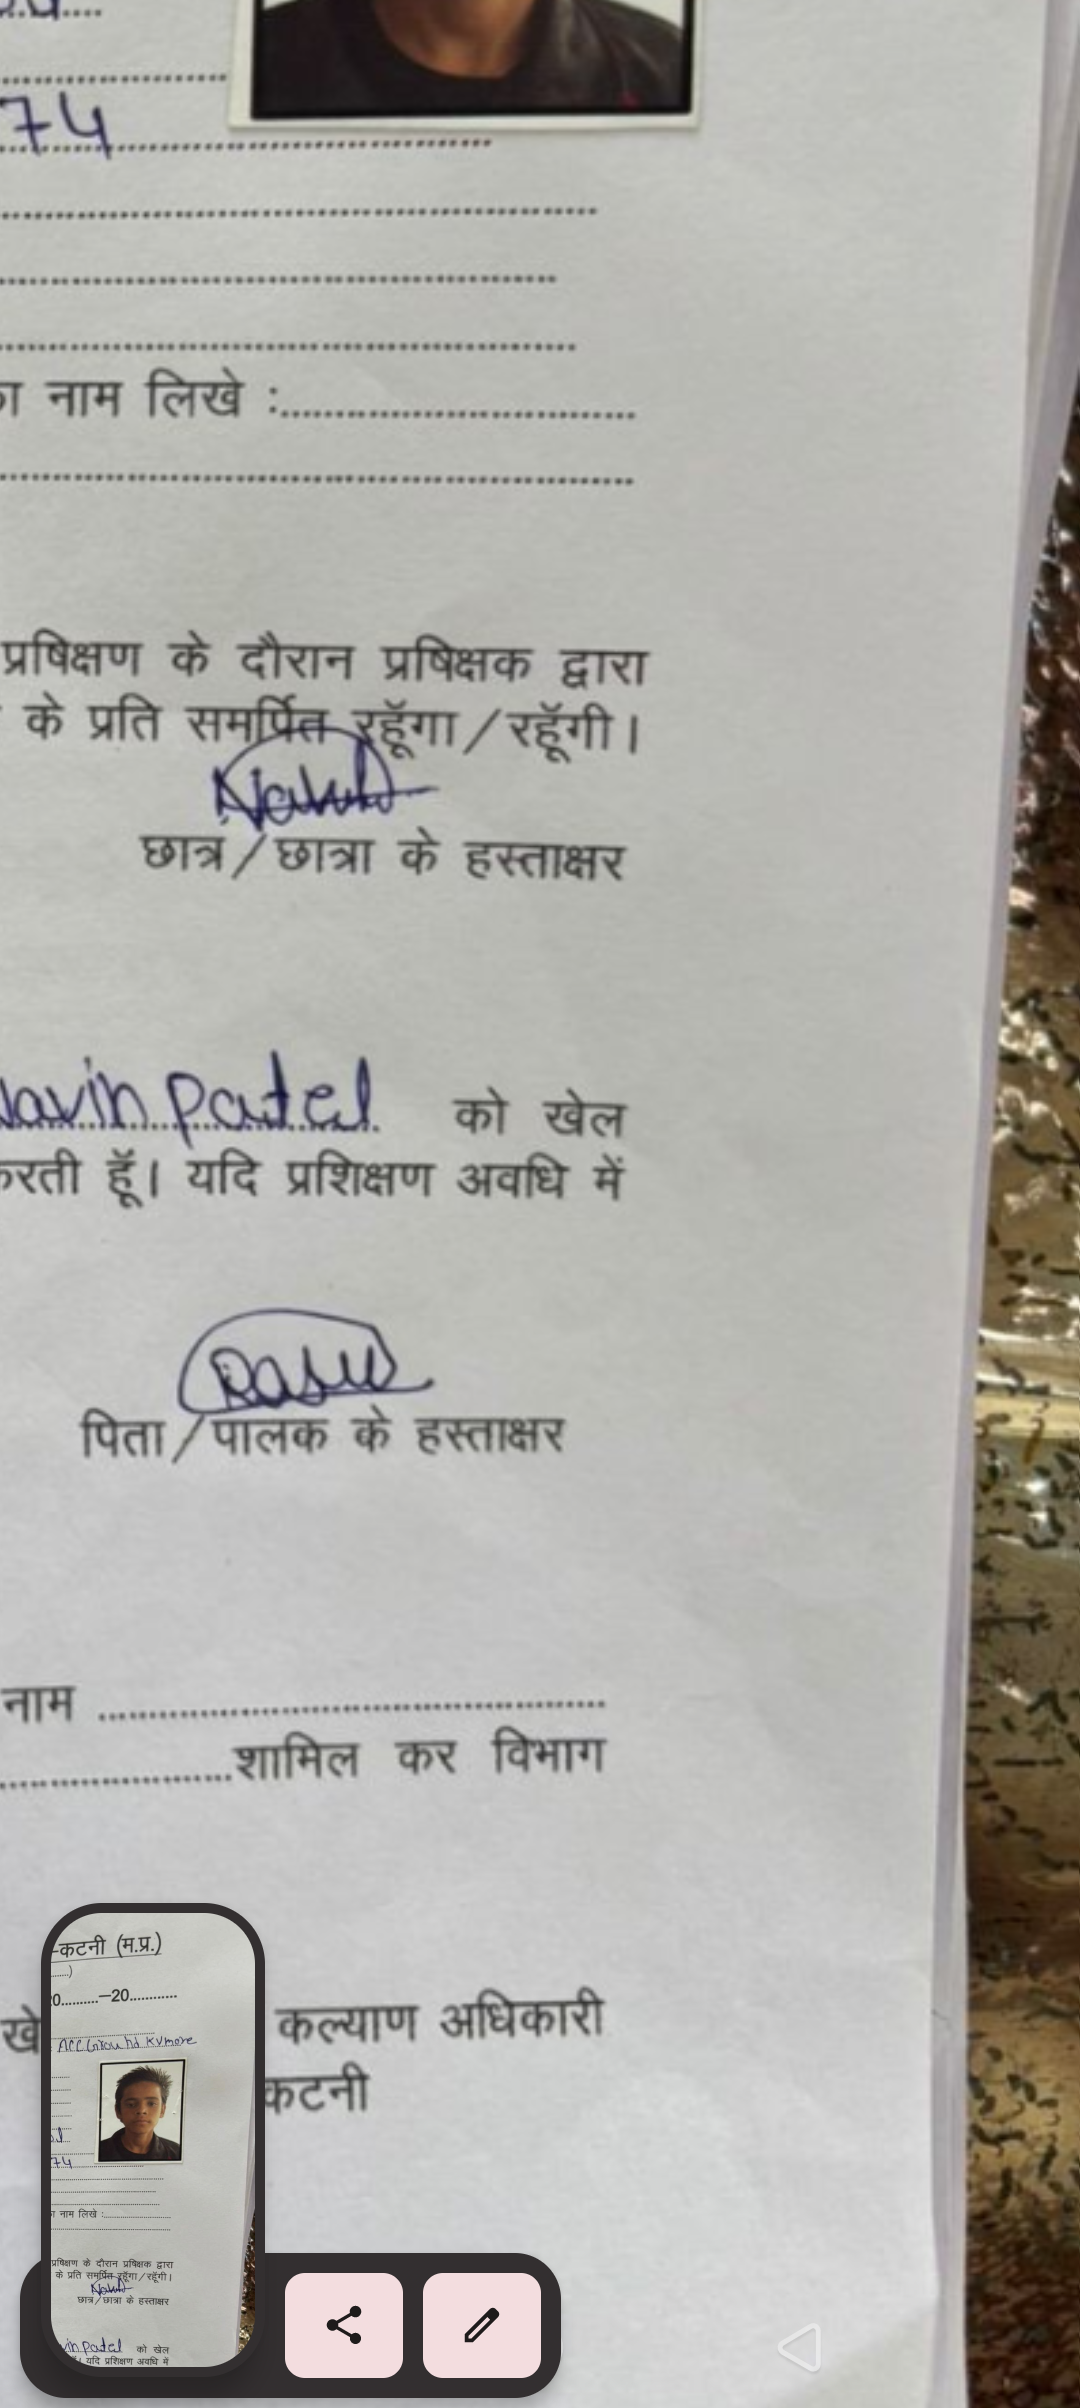 74
का नाम लिखे :
प्रषिक्षण के दौरान प्रषिक्षक द्वारा
के प्रति समर्पित रहूॅगा/रहूॅगी।
छात्र/छात्रा के हस्ताक्षर
Navin Patel को खेल
करती हूॅ। यदि प्रशिक्षण अवधि में
पिता/पालक के हस्ताक्षर
नाम
शामिल कर विभाग
खे कल्याण अधिकारी
कटनी
-कटनी (म.प्र.)
20.........-20............
ACC Ground Kymore
74
का नाम लिखे :
प्रषिक्षण के दौरान प्रषिक्षक द्वारा
के प्रति समर्पित रहूॅगा/रहूॅगी।
छात्र/छात्रा के हस्ताक्षर
vin Patel को खेल
यदि प्रशिक्षण अवधि में